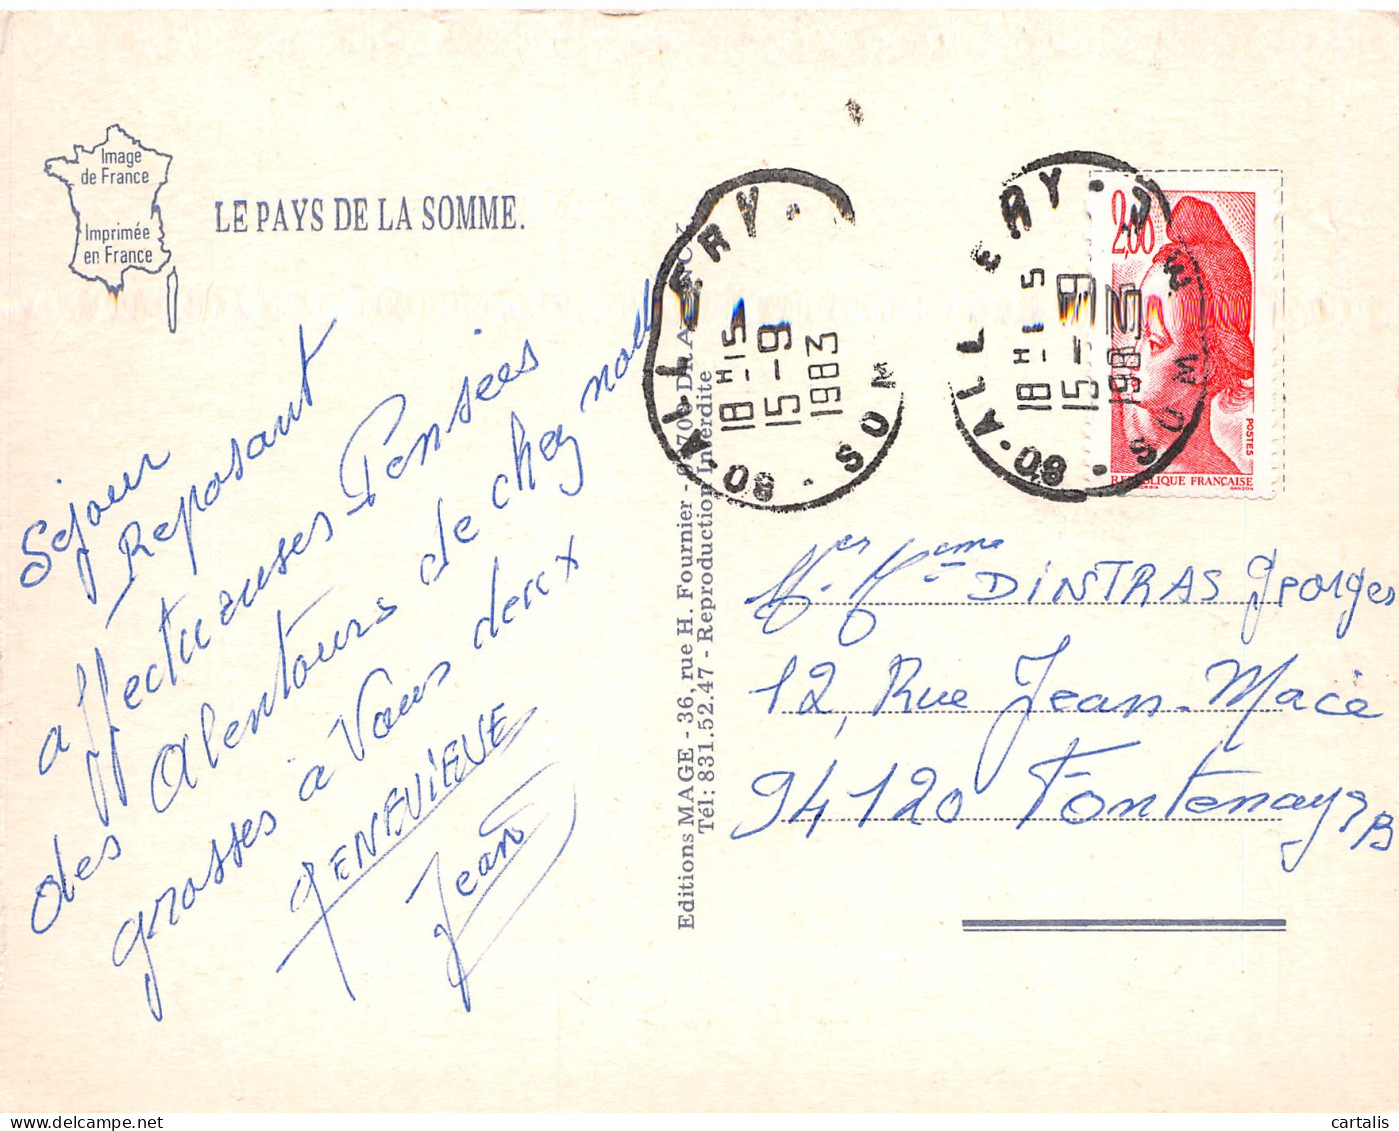 Image
de France
Imprimée
en France
LE PAYS DE LA SOMME.
Séjour
Reposant
affectueuses Pensées
des alentours de chez nous
grosses à Vous deux
GENEVIEVE
Jean
Editions MAGE - 36, rue H. Fournier - 93700 DRANCY
Tél: 831.52.47 - Reproduction Interdite
80 - ALLERY - SOMME
18 H 15
15 - 9
1983
80 - ALLERY - SOMME
18 H 15
15 - 9
1983
2,00
POSTES
REPUBLIQUE FRANÇAISE
GANDON
DINTRAS Georges
12, Rue Jean-Macé
94120 Fontenay s B
cartalis